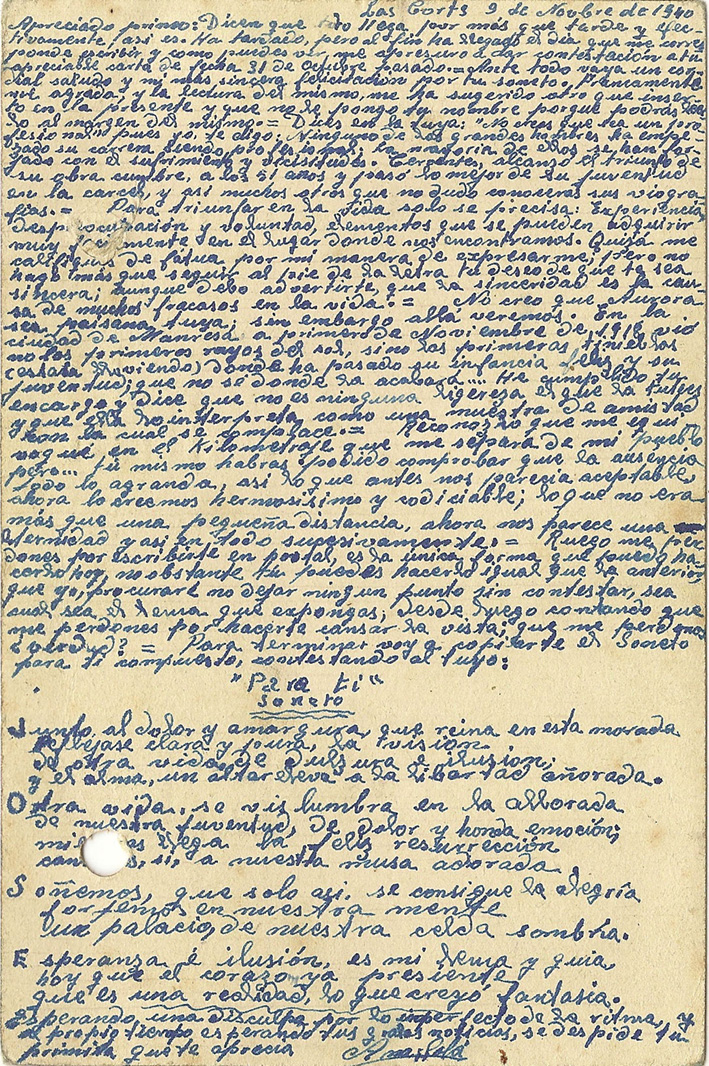 Las Corts 9 de Novbre de 1940
Apreciado primo: Dicen que todo llega por más que tarde y efec-
tivamente, asi es. Ha tardado, pero al fin ha llegado el dia que me corres
ponde escribir y como puedes ver me apresuro a dar contestación a tu
apreciable carta de fecha 31 de Octubre pasado.= Ante todo vaya un cor
dial saludo y mi más sincera felicitación por tu soneto. Francamente
me agrada y la lectura del mismo, me ha sugerido otro que inser
to en la presente y que no le pongo tu nombre porque podrás
lo al margen del mismo.= Dices en la tuya: "No creas que sea un pro
fesional" pues yo, te digo: Ninguno de los grandes hombres ha empe
zado su carrera siendo profesional, la mayoria de ellos se han for
jado con el sufrimiento y vicisitudes. Cervantes, alcanzó el triunfo de
su obra cumbre, a los 51 años y pasó lo mejor de su juventud
en la carcel y asi muchos otros que no dudo conocerás sus viogra
fias.= Para triunfar en la vida solo se precisa: Experiencia,
despreocupación y voluntad, elementos que se pueden adquirir
muy facilmente en el lugar donde nos encontramos. Quizá me
califiques de fatua por mi manera de expresarme, pero no
hago más que seguir al pie de la letra tu deseo de que te sea
sincera; aunque debo advertirte, que la sinceridad es la cau-
sa de muchos fracasos en la vida.= No creo que Aurora
sea paisana tuya; sin embargo allá veremos. En la
ciudad de Manresa a primero de Noviembre de 1918 vió
no los primeros rayos del sol, sino las primeras tinieblas
(estaba lloviendo) donde ha pasado su infancia feliz y su
juventud; que no sé donde la acabará.... He cumplido tu
encargo y dice que no es ninguna ligereza el que la tutees
y que ella lo interpreta como una muestra de amistad
con la cual se complace.= Reconozco que me equi
voqué en el kilometraje que me separa de mi pueblo
pero... tu mismo habrás podido comprobar que la ausencia
todo lo agranda, asi lo que antes nos parecia aceptable,
ahora lo creemos hermosisimo y codiciable; lo que no era
más que una pequeña distancia, ahora nos parece una
eternidad y asi en todo sucesivamente.= Ruego me per
dones por escribirte en postal, es la única forma que puedo ha-
cerlo hoy, no obstante tu puedes hacerlo igual que la anterior
que yo, procuraré no dejar ningun punto sin contestar, sea
cual sea el tema que expongas; desde luego contando que
me perdones por hacerte cansar la vista; que me perdonas
¿verdad? = Para terminar voy a copiarte el Soneto
para ti compuesto, contestando al tuyo:
"Para ti"
Soneto
Junto al dolor y amargura, que reina en esta morada
reflejase clara y pura, la visión
de otra vida de dulzura é ilusion;
y el alma, un altar eleva a la libertad añorada.
Otra vida, se vislumbra en la alborada
de nuestra juventud, de dolor y honda emoción;
llega la feliz resurrección
si, a nuestra musa adorada.
Soñemos, que solo asi, se consigue la alegría
forjemos en nuestra mente
un palacio, de nuestra celda sombria.
Esperanza é ilusión, es mi lema y guia,
hoy que el corazon ya presiente
que es una realidad, lo que creyó fantasia.
Esperando una disculpa por lo imperfecto de la ritma, y
al propio tiempo esperando tus gratas noticias, se despide tu
primita que te aprecia